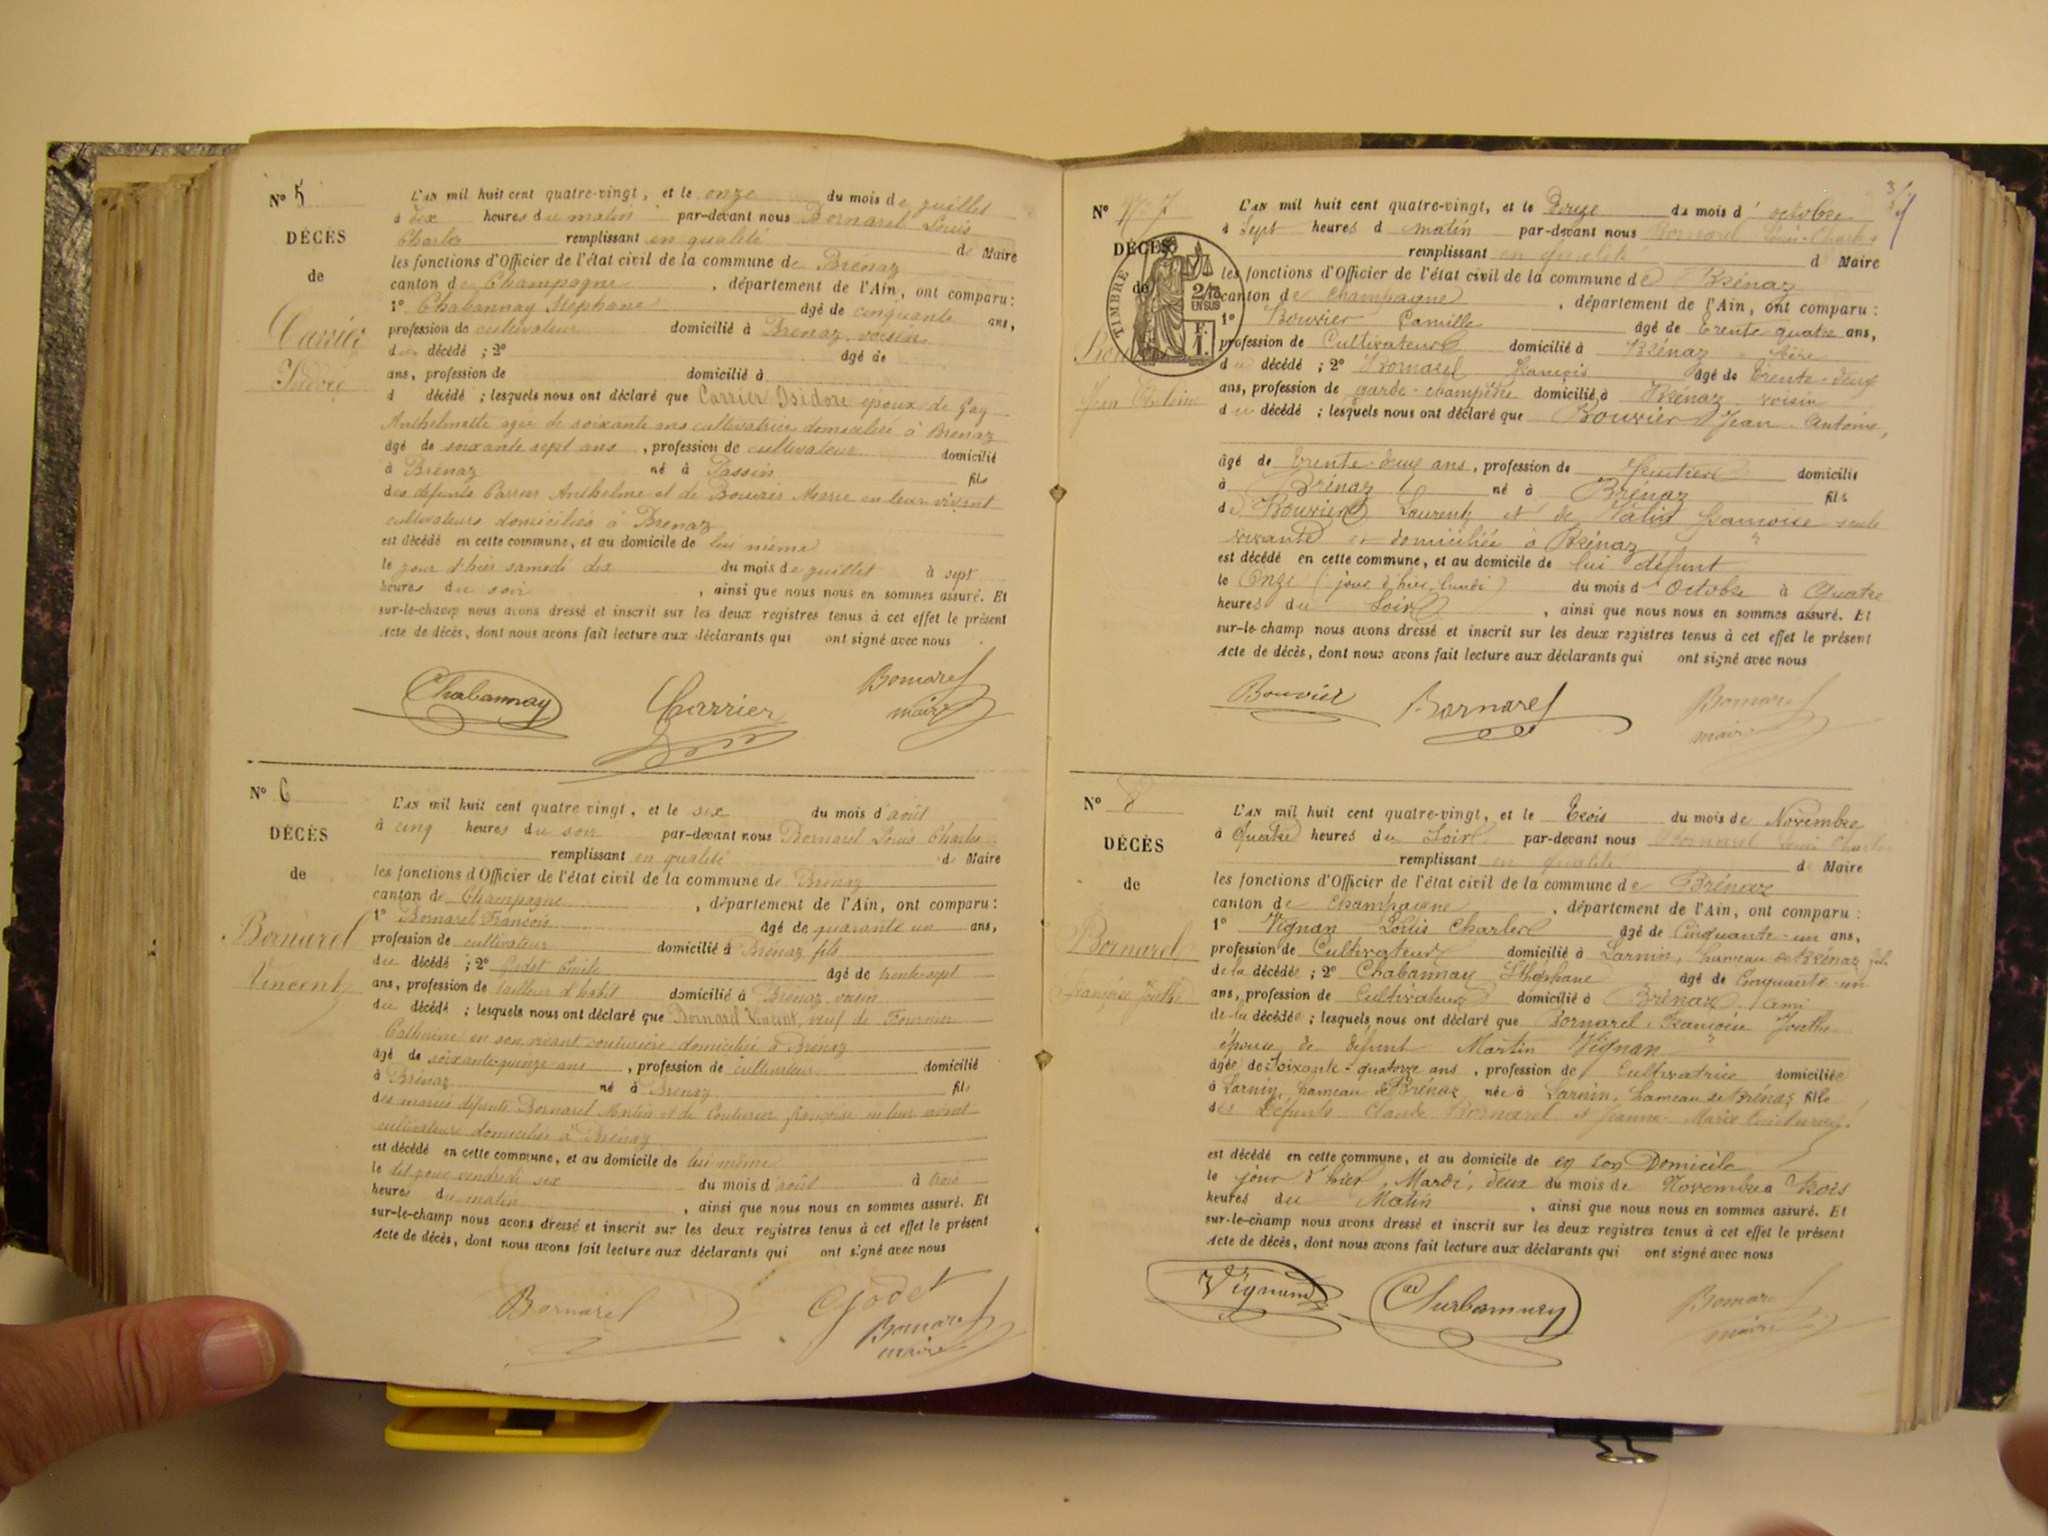 N° 5
DÉCÈS
de
Carrier
Isidore
L'AN mil huit cent quatre-vingt, et le onze du mois de juillet
à dix heures du matin par-devant nous Bornarel Louis
Charles remplissant en qualité de Maire
les fonctions d'Officier de l'état civil de la commune de Brénaz
canton de Champagne, département de l'Ain, ont comparu :
1° Chabannay Stéphane âgé de cinquante ans,
profession de cultivateur domicilié à Brénaz voisin
du décédé ; 2° âgé de
ans, profession de domicilié à
d décédé ; lesquels nous ont déclaré que Carrier Isidore époux de Gay
Anthelmette agée de soixante ans cultivatrice domiciliée à Brénaz
âgé de soixante sept ans, profession de cultivateur domicilié
à Brénaz né à Passin fils
des défunts Carrier Anthelme et de Bouvier Marie en leur vivant
cultivateurs domiciliés à Brenaz
est décédé en cette commune, et au domicile de lui même
le jour d'hier samedi dix du mois de juillet à sept
heures du soir, ainsi que nous nous en sommes assuré. Et
sur-le-champ nous avons dressé et inscrit sur les deux registres tenus à cet effet le présent
Acte de décès, dont nous avons fait lecture aux déclarants qui ont signé avec nous
Chabannay Carrier Bornarel
maire
N° 6
DÉCÈS
de
Bornarel
Vincent
L'AN mil huit cent quatre vingt, et le six du mois d'août
à cinq heures du soir par-devant nous Bornarel Louis Charles
remplissant en qualité de Maire
les fonctions d'Officier de l'état civil de la commune de Brénaz
canton de Champagne, département de l'Ain, ont comparu :
1° Bornarel François âgé de quarante un ans,
profession de cultivateur domicilié à Brénaz fils
du décédé ; 2° Godet Emile âgé de trente-sept
ans, profession de tailleur d'habit domicilié à Brénaz voisin
du décédé ; lesquels nous ont déclaré que Bornarel Vincent, veuf de Fournier
Catherine en son vivant couturière domiciliée à Brénaz
âgé de soixante-quinze ans, profession de cultivateur domicilié
à Brénaz né à Brénaz fils
des mariés défunts Bornarel et de Couturier françoise en leur vivant
cultivateurs domiciliés à Brénaz
est décédé en cette commune, et au domicile de lui même
le dit jour vendredi six du mois d'août à trois
heures du matin, ainsi que nous nous en sommes assuré. Et
sur-le-champ nous avons dressé et inscrit sur les deux registres tenus à cet effet le présent
Acte de décès, dont nous avons fait lecture aux déclarants qui ont signé avec nous
Bornarel Godet
Bornarel
maire
N° 7
DÉCÈS
de
Jean Antoine
TIMBRE
2/10
EN SUS
L'AN mil huit cent quatre-vingt, et le Douze du mois d'octobre
à Sept heures d matin par-devant nous Bornarel Louis-Charles
remplissant en qualité d Maire
les fonctions d'Officier de l'état civil de la commune de Brénaz
canton de champagne, département de l'Ain, ont comparu :
1° Bouvier Camille âgé de trente-quatre ans,
profession de Cultivateur domicilié à Brénaz frère
du décédé ; 2° Bornarel françois âgé de trente-deux
ans, profession de garde-champêtre domicilié à Brénaz voisin
du décédé ; lesquels nous ont déclaré que Bouvier Jean-Antoine,
âgé de trente-deux ans, profession de domicilié
à Brénaz né à Brénaz fils
de Bouvier Laurent et de françoise seule
vivante et domiciliée à Brénaz
est décédé en cette commune, et au domicile de lui défunt
le Onze (jour d'hier, lundi) du mois d'Octobre à Quatre
heures du Soir, ainsi que nous nous en sommes assuré. Et
sur-le-champ nous avons dressé et inscrit sur les deux registres tenus à cet effet le présent
Acte de décès, dont nous avons fait lecture aux déclarants qui ont signé avec nous
Bouvier Bornarel Bornarel
maire
N° 8
DÉCÈS
de
Bornarel
Françoise Josethe
L'AN mil huit cent quatre-vingt, et le Trois du mois de Novembre
à Quatre heures du Soir par-devant nous Bornarel Louis Charles
remplissant en qualité d Maire
les fonctions d'Officier de l'état civil de la commune de Brénaz
canton de champagne, département de l'Ain, ont comparu :
1° Vignan Louis Charles âgé de Cinquante-un ans,
profession de Cultivateur domicilié à Larnin, hameau de Brénaz fils
de la décédée ; 2° Chabannay Sthéphane âgé de Cinquante-un
ans, profession de Cultivateur domicilié à Brénaz, ami
de la décédée ; lesquels nous ont déclaré que Bornarel, Françoise Josethe
épouse de défunt Martin Vignan
âgée de Soixante-quatorze ans, profession de Cultivatrice domiciliée
à Larnin, hameau de Brénaz née à Larnin, hameau de Brénaz fille
des Défunts Claude Bornarel et Jeanne-Marie
est décédé en cette commune, et au domicile de en son Domicile
le jour d'hier, Mardi, deux du mois de Novembre à Trois
heures du Matin, ainsi que nous nous en sommes assuré. Et
sur-le-champ nous avons dressé et inscrit sur les deux registres tenus à cet effet le présent
Acte de décès, dont nous avons fait lecture aux déclarants qui ont signé avec nous
Vignand Chabannay Bornarel
maire